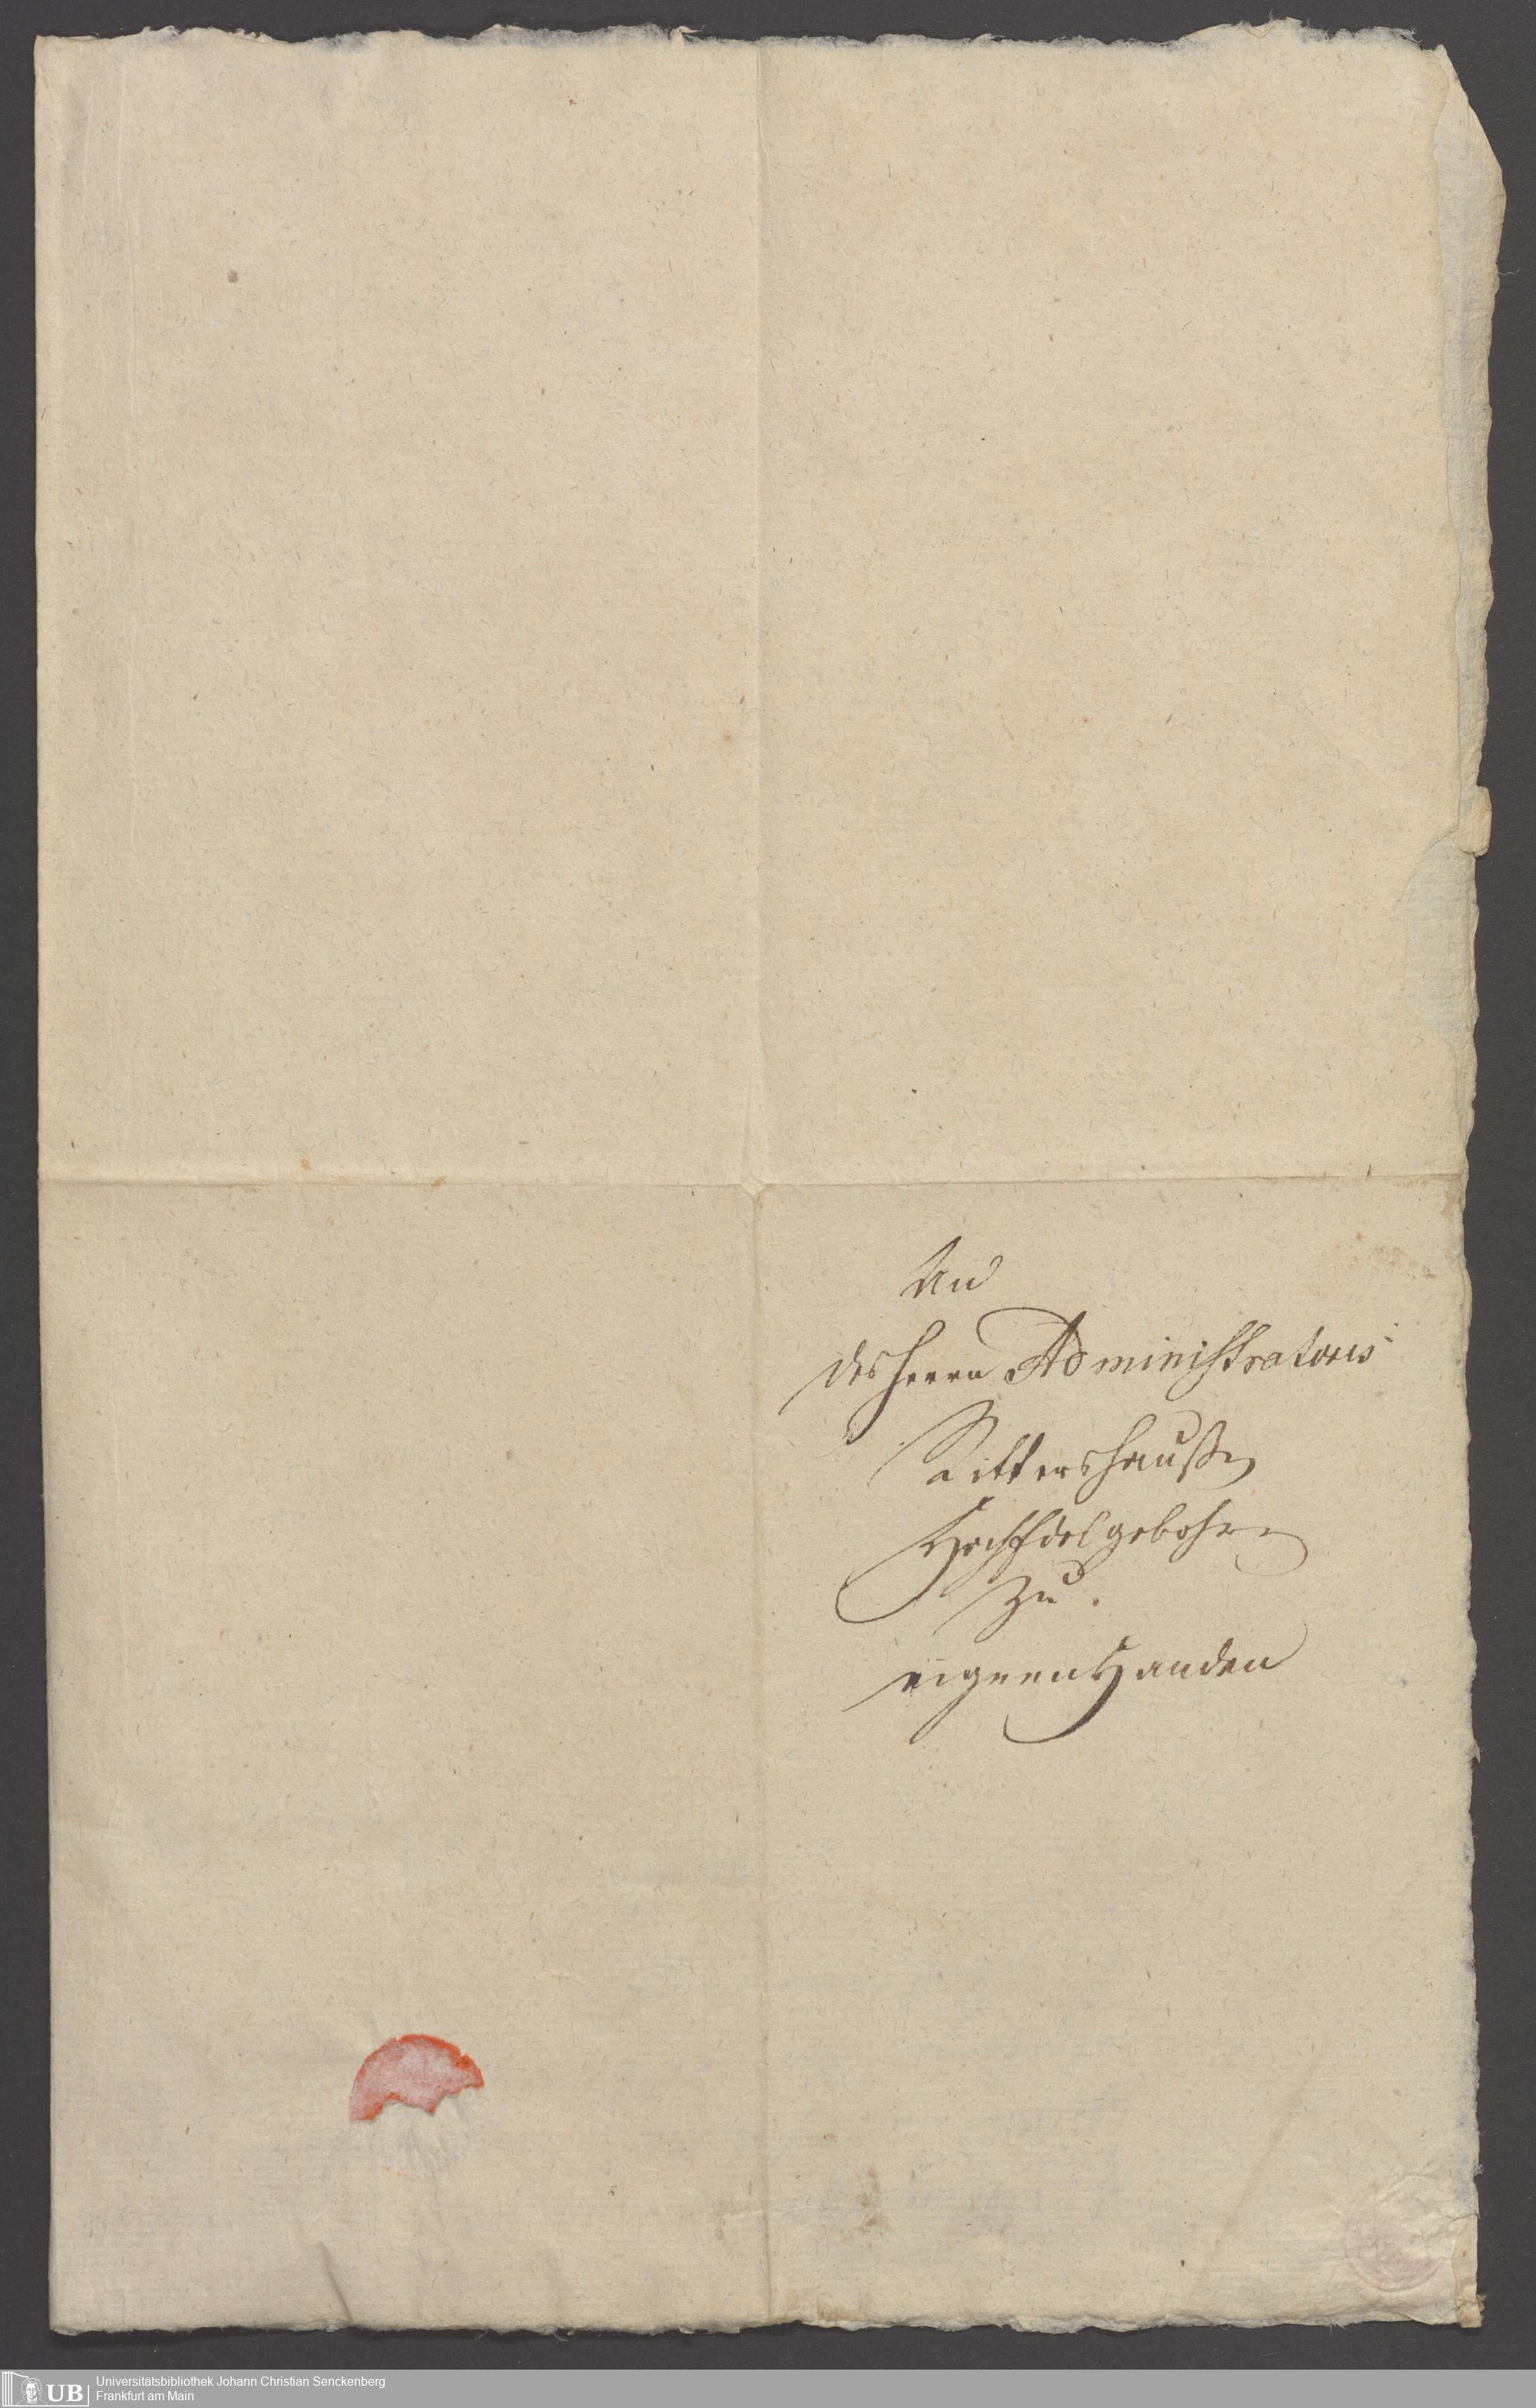 An
des Herrn Administratoris
Rittershaußen
Hochedelgebohrn
zu
eignen Handen
UB
Universitätsbibliothek Johann Christian Senckenberg
Frankfurt am Main